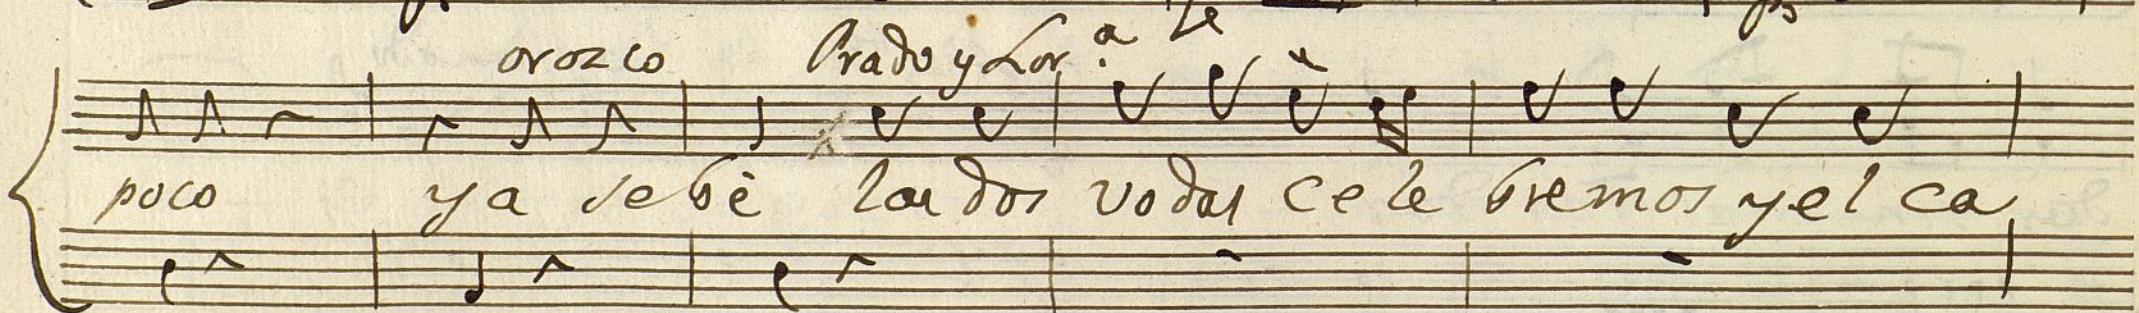 orozco Prado y Lor.ª
poco ya se bè las dos vodas cele bremos y el ca